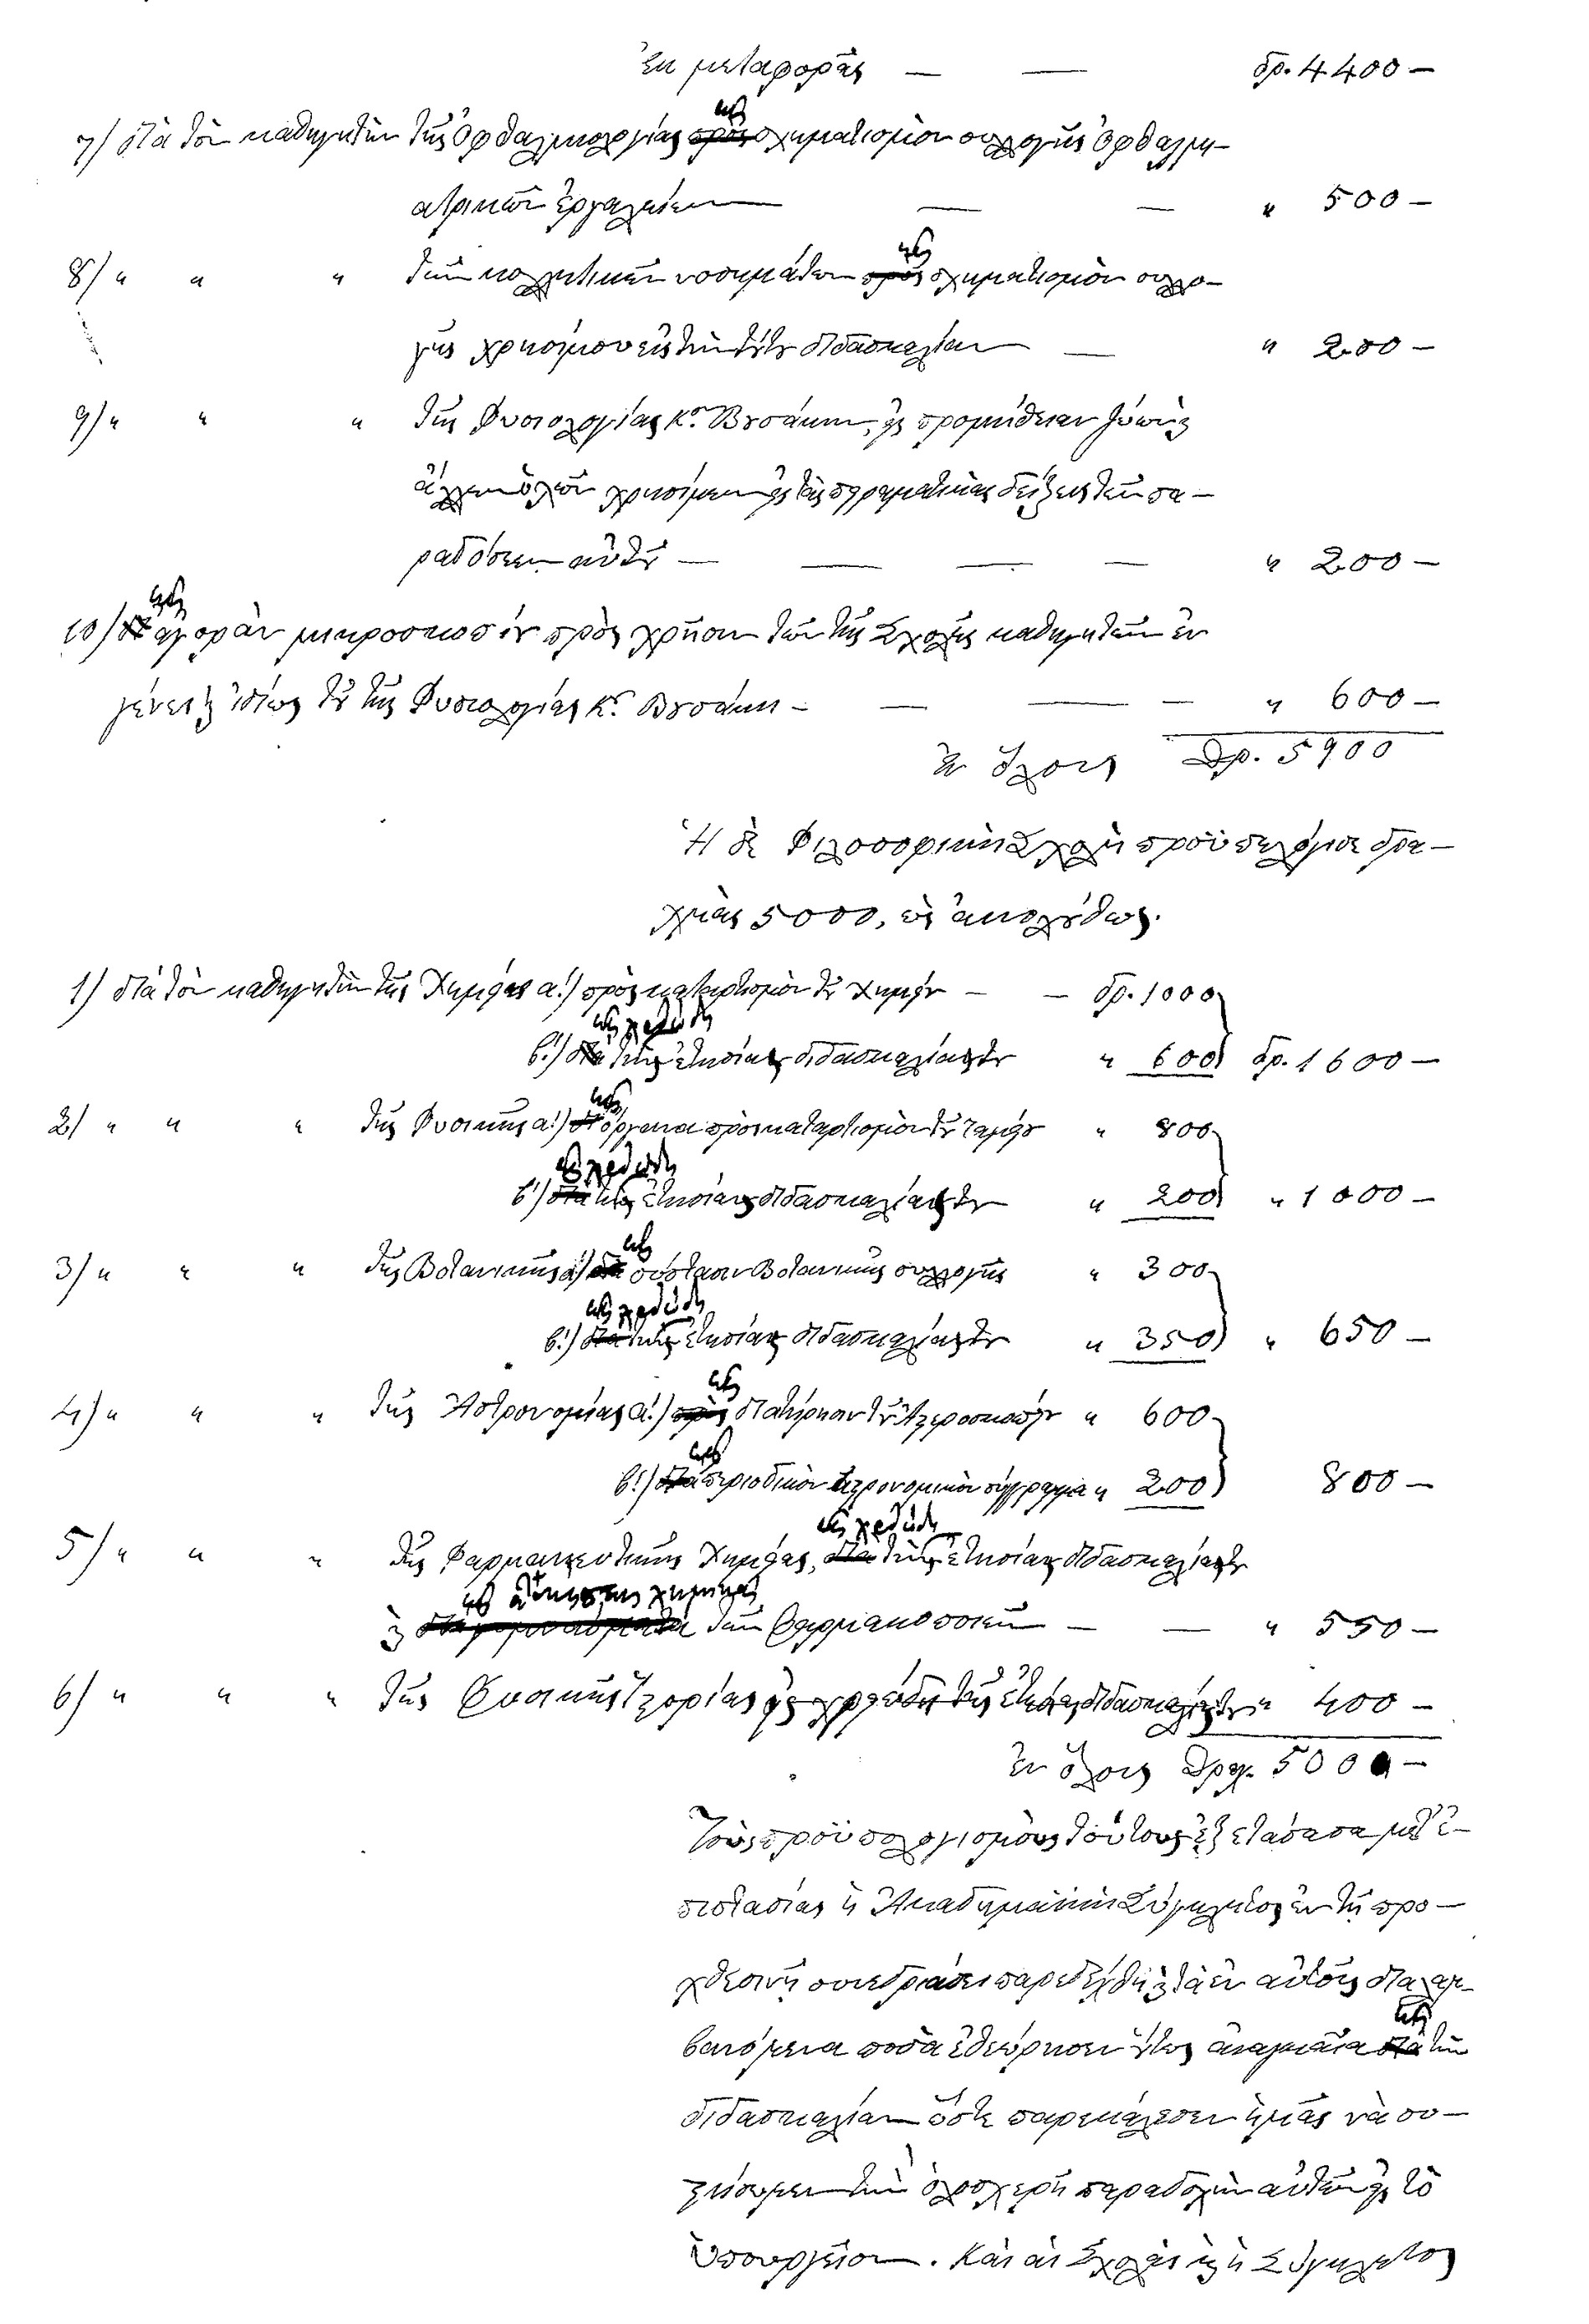 Ἐκ μεταφορᾶς — — δρ. 4400 —
7/ διὰ τὸν καθηγητὴν τῆς Ὀφθαλμολογίας εἰς σχηματισμὸν συλλογῆς Ὀφθαλμι-
ατρικῶν ἐργαλείων — — — " 500 —
8/ " " " τῶν κολλητικῶν νοσημάτων εἰς σχηματισμὸν συλλο-
γῆς χρησίμου εἰς τὴν διδασκαλίαν — " 200 —
9/ " " " τῆς Φυσιολογίας Κον Βουσάκην, εἰς προμήθειαν ζώων καὶ
ἄλλων ὑλῶν χρησίμων εἰς τὰς πειραματικὰς δείξεις τῶν πα-
ραδόσεων αὐτοῦ — — — — " 200 —
10/ εἰς ἀγορὰν μικροσκοπίου πρὸς χρῆσιν τῶν τῆς Σχολῆς καθηγητῶν ἐν
γένει καὶ ἰδίως τοῦ τῆς Φυσιολογίας Κ. Βουσάκη — — — — " 600 —
Ἐν ὅλοις Δρ. 5900
Ἡ δὲ Φιλοσοφικὴ Σχολὴ προϋπελόγισε δρα-
χμὰς 5000, ὡς ἀκολούθως.
1) διὰ τὸν καθηγητὴν τῆς Χημείας α!) πρὸς καταρτισμὸν τοῦ χημείου — — δρ. 1000
β!) εἰς χρείαν τῆς ἐτησίας διδασκαλίας του " 600 δρ. 1600 —
2/ " " " τῆς Φυσικῆς α!) εἰς ὄργανα πρὸς καταρτισμὸν τοῦ ταμείου " 800
β!) τῆς ἐτησίας διδασκαλίας του " 200 " 1000 —
3/ " " " τῆς Βοτανικῆς α!) εἰς σύστασιν Βοτανικῆς συλλογῆς " 300
β!) τῆς ἐτησίας διδασκαλίας του " 350 " 650 —
4/ " " " τῆς Ἀστρονομίας α!) εἰς διατήρησιν τοῦ Ἀστεροσκοπείου " 600
β!) εἰς περιοδικὸν ἀστρονομικὸν σύγγραμμα " 200 800 —
5/ " " " τῆς Φαρμακευτικῆς Χημείας, τῆς ἐτησίας διδασκαλίας του
καὶ εἰς τῶν Φαρμακοποιῶν — — " 550 —
6/ " " " τῆς Φυσικῆς Ἱστορίας εἰς τῆς ἐτησίας διδασκαλίας του " 400 —
Ἐν ὅλοις Δρχ. 5000 —
Τοὺς προϋπολογισμοὺς τούτους ἐξετάσασα μετ' ἐ-
πιστασίας ἡ Ἀκαδημαϊκὴ Σύγκλητος ἐν τῇ προ-
χθεσινῇ συνεδριάσει παρεδέχθη καὶ τὰ ἐν αὐτοῖς διαλαμ-
βανόμενα ποσὰ ἐθεώρησεν οὕτως ἀναγκαῖα εἰς τὴν
διδασκαλίαν ὥστε παρεκάλεσεν ἡμᾶς νὰ συ-
στήσωμεν τὴν ὁλοσχερῆ παραδοχὴν αὐτῶν εἰς τὸ
Ὑπουργεῖον. Καὶ αἱ Σχολαὶ καὶ ἡ Σύγκλητος